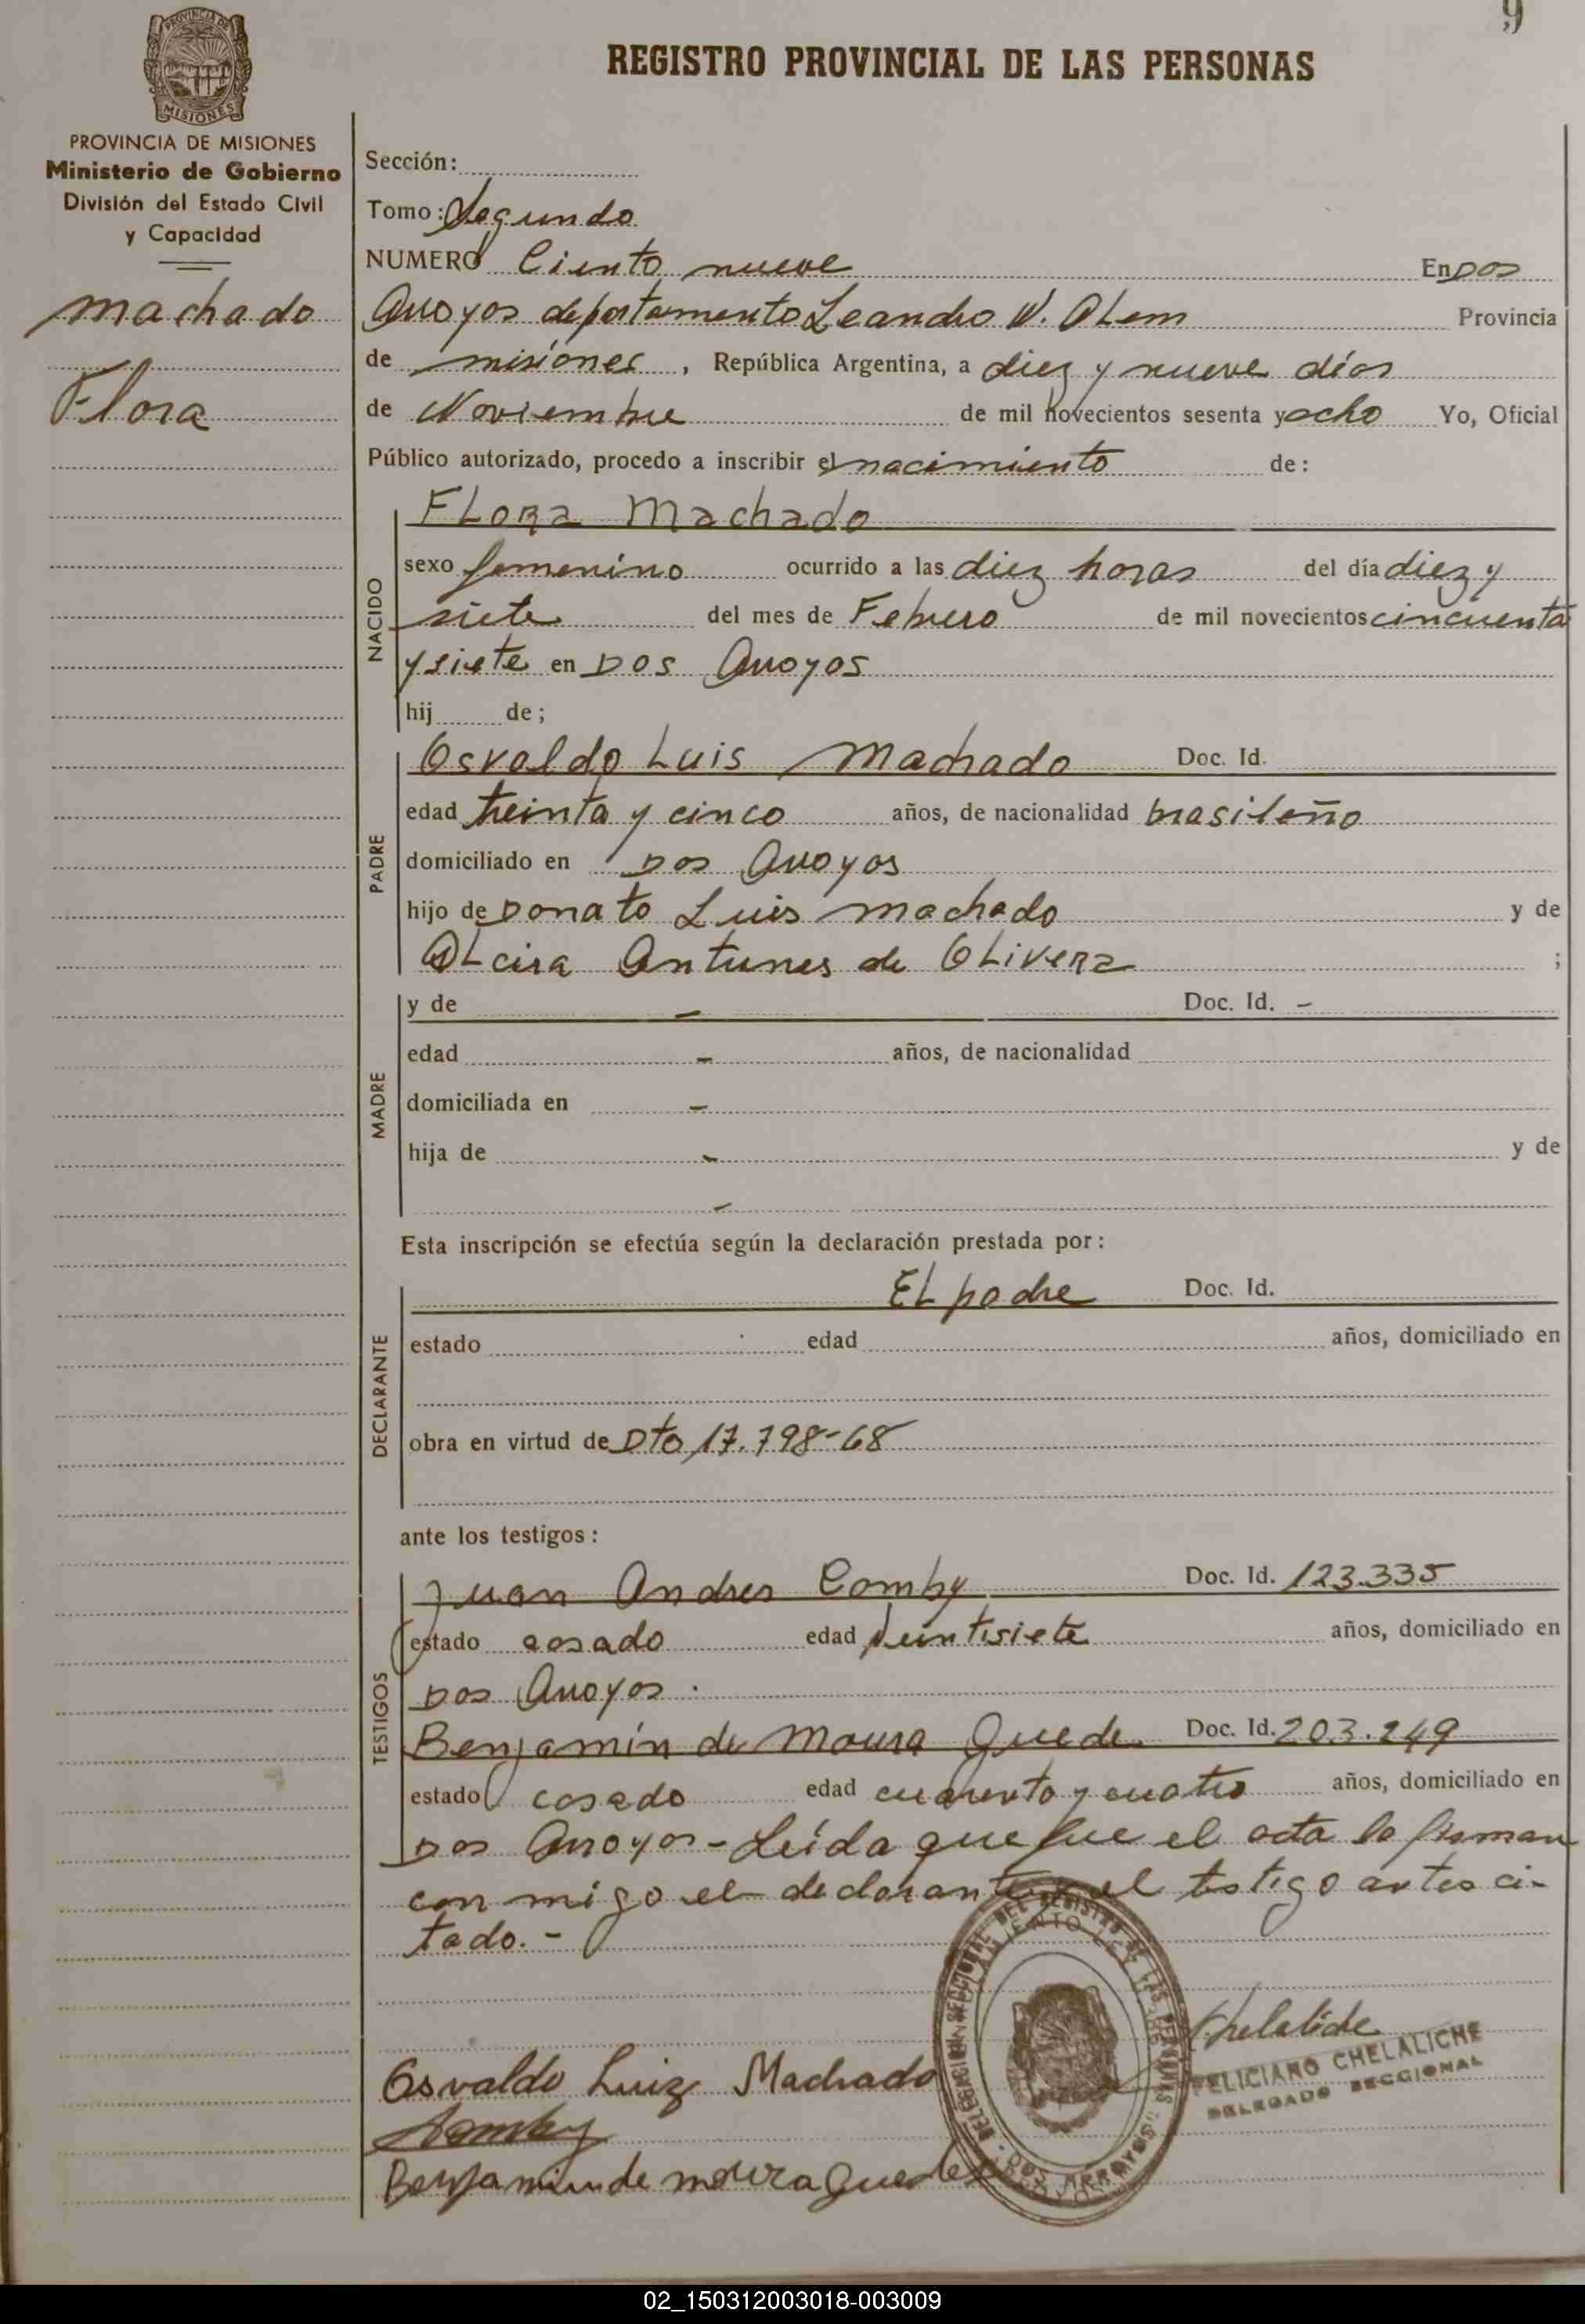 9
PROVINCIA DE
MISIONES
REGISTRO PROVINCIAL DE LAS PERSONAS
PROVINCIA DE MISIONES
Ministerio de Gobierno
División del Estado Civil
y Capacidad
Machado
Flora
Sección:
Tomo: Segundo
NUMERO Ciento nueve En Dos
Arroyos departamento Leandro N. Alem Provincia
de misiones, República Argentina, a diez y nueve días
de Noviembre de mil novecientos sesenta y ocho Yo, Oficial
Público autorizado, procedo a inscribir el nacimiento de:
NACIDO
Flora Machado
sexo femenino ocurrido a las diez horas del día diez y
siete del mes de Febrero de mil novecientos cincuenta
y siete en Dos Arroyos
hij de;
PADRE
Osvaldo Luis Machado Doc. Id.
edad treinta y cinco años, de nacionalidad brasileño
domiciliado en Dos Arroyos
hijo de Donato Luis Machado y de
Alcira Antunes de Olivera ;
MADRE
y de - Doc. Id. -
edad - años, de nacionalidad
domiciliada en -
hija de - y de
-
Esta inscripción se efectúa según la declaración prestada por:
DECLARANTE
El padre Doc. Id.
estado edad años, domiciliado en
obra en virtud de Dto 17.798-68
ante los testigos:
TESTIGOS
Juan Andres Comby Doc. Id. 123.335
estado casado edad veintisiete años, domiciliado en
Dos Arroyos.
Benjamín de Moura Quede Doc. Id. 203.249
estado casado edad cuarenta y cuatro años, domiciliado en
Dos Arroyos - Leída que fue el acta la firman
con migo el declarante y el testigo antes ci-
tado. -
DELEGACION SECCIONAL DEL REGISTRO DE LAS PERSONAS
DOS ARROYOS
Chelaliche
FELICIANO CHELALICHE
DELEGADO SECCIONAL
Osvaldo Luiz Machado
Comby
Benjamin de moura Guedes
02_150312003018-003009